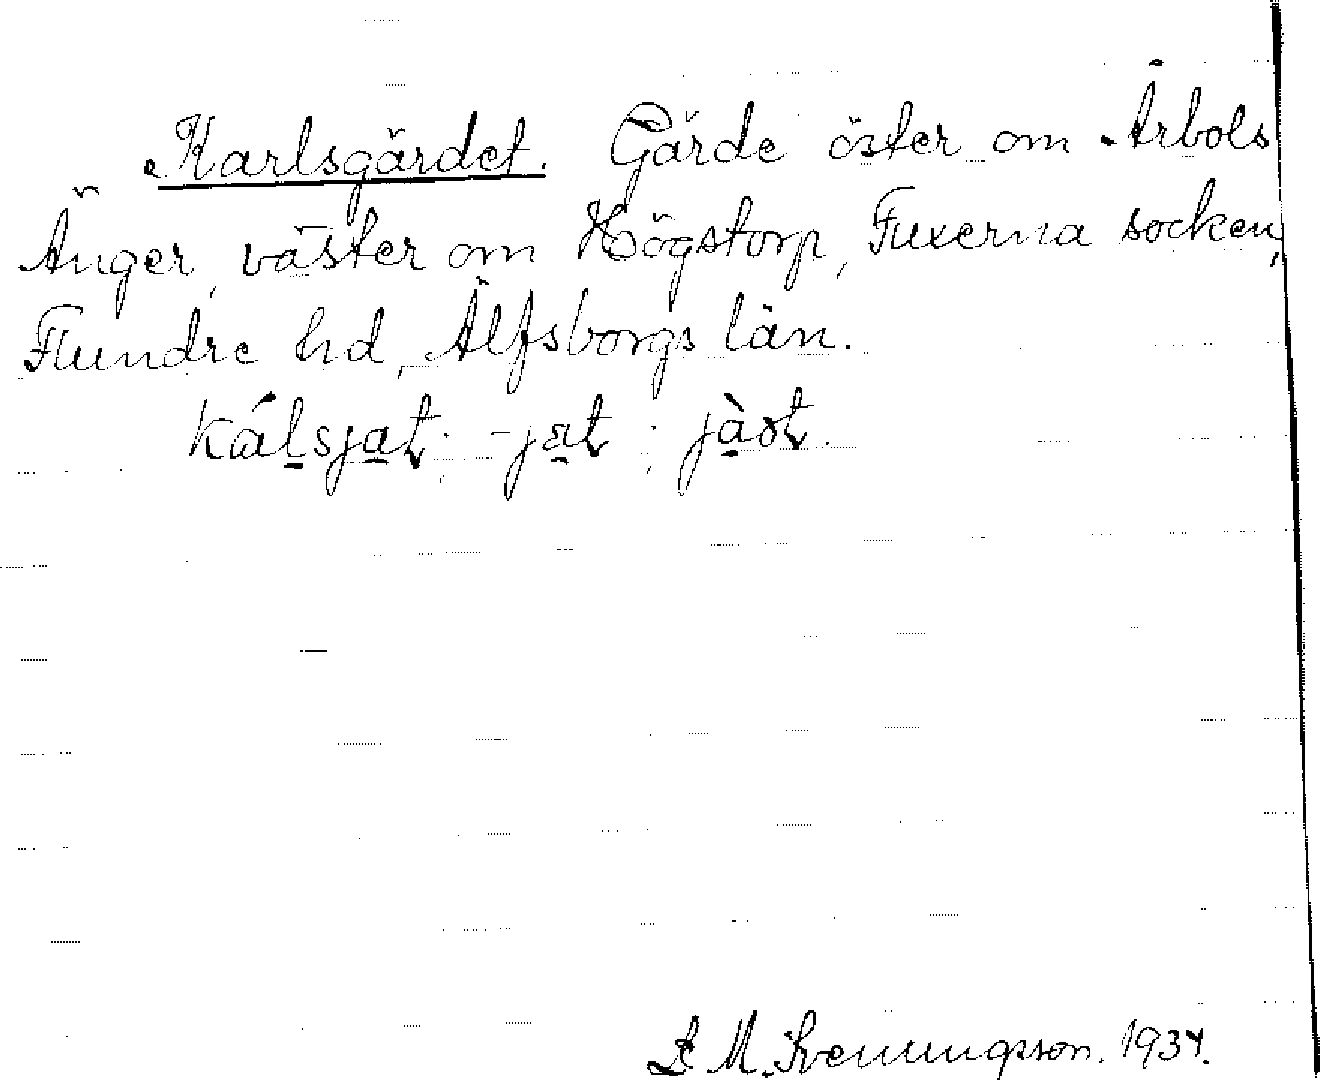 Karlsgärdet. Gärde öster om Årbols
Änger, väster om Högstorp, Fuxerna socken,
Flundre hd, Älfsborgs län.
kálsjat; -jat; jàt.
B. M. Svenungsson. 1934.